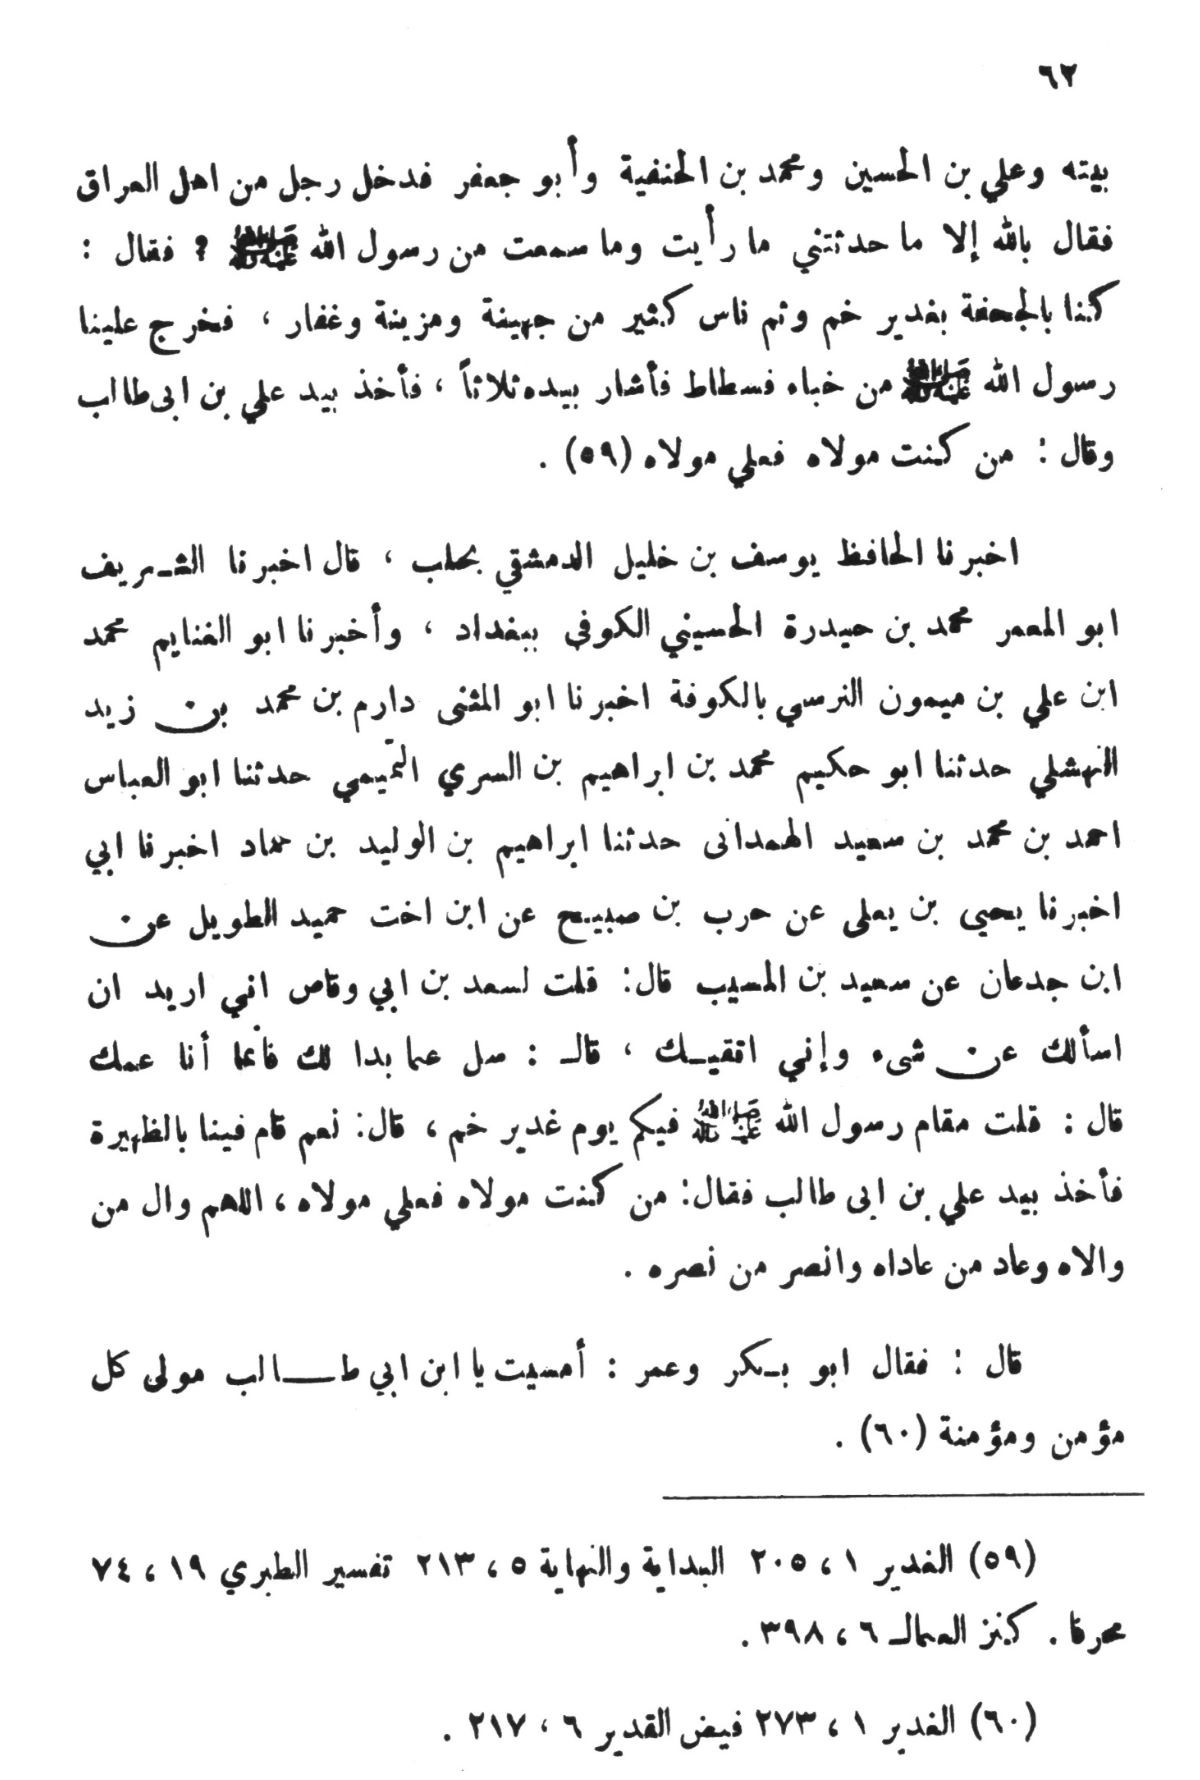 ٦٢
بيته وعلي بن الحسين ومحمد بن الحنفية وأبو جعفر فدخل رجل من اهل العراق
فقال بالله إلا ما حدثتني ما رأيت وما سمعت من رسول الله ﷺ ? فقال :
كنا بالجحفة بغدير خم وثم ناس كثير من جهينة ومزينة وغفار ، فخرج علينا
رسول الله ﷺ من خباء فسطاط فأشار بيده ثلاثاً ، فأخذ بيد علي بن ابى طالب
وقال : من كنت مولاه فعلي مولاه (٥٩) .
اخبرنا الحافظ يوسف بن خليل الدمشقي بحلب ، قال اخبرنا الشـريف
ابو المعمر محمد بن حيدرة الحسيني الكوفى ببغداد ، وأخبرنا ابو الغنايم محمد
ابن علي بن ميمون النرسي بالكوفة اخبرنا ابو المثنى دارم بن محمد بن زيد
النهشلي حدثنا ابو حكيم محمد بن ابراهيم بن السري التميمي حدثنا ابو العباس
احمد بن محمد بن سعيد الهمدانى حدثنا ابراهيم بن الوليد بن حماد اخبرنا ابي
اخبرنا يحيى بن يعلى عن حرب بن صبيح عن ابن اخت حميد الطويل عن
ابن جدعان عن سعيد بن المسيب قال: قلت لسعد بن ابي وقاص اني اريد ان
اسألك عن شىء وإني اتقيـك ، قالـ : سل عما بدا لك فأنما أنا عمك
قال : قلت مقام رسول الله ﷺ فيكم يوم غدير خم ، قال: نعم قام فينا بالظهيرة
فأخذ بيد علي بن ابى طالب فقال: من كنت مولاه فعلي مولاه ، اللهم وال من
والاه وعاد من عاداه وانصر من نصره .
قال : فقال ابو بـكر وعمر : أمسيت يا ابن ابي طـــالب مولى كل
مؤمن ومؤمنة (٦٠) .
(٥٩) الغدير ١ ، ٢٠٥ البداية والنهاية ٥ ، ٢١٣ تفسير الطبري ١٩ ، ٧٤
محرفا . كنز العمالـ ٦ ، ٣٩٨ .
(٦٠) الغدير ١ ، ٢٧٣ فيض القدير ٦ ، ٢١٧ .